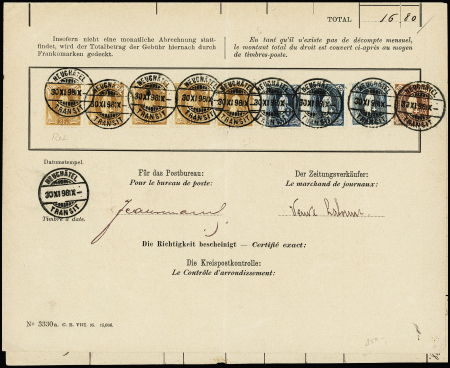 TOTAL 16 80
Insofern nicht eine monatliche Abrechnung statt-
findet, wird der Totalbetrag der Gebühr hiernach durch
Frankomarken gedeckt.
En tant qu'il n'existe pas de décompte mensuel,
le montant total du droit est couvert ci-après au moyen
de timbres-poste.
NEUCHÂTEL 30 XI 98 IX- TRANSIT
NEUCHÂTEL 30 XI 98 IX- TRANSIT
NEUCHÂTEL 30 XI 98 IX- TRANSIT
NEUCHÂTEL 30 XI 98 IX- TRANSIT
NEUCHÂTEL 30 XI 98 IX- TRANSIT
NEUCHÂTEL 30 XI 98 IX- TRANSIT
NEUCHÂTEL 30 XI 98 IX- TRANSIT
NEUCHÂTEL 30 XI 98 IX- TRANSIT
NEUCHÂTEL 30 XI 98 IX- TRANSIT
Datumstempel.
NEUCHÂTEL
30 XI 98 IX-
TRANSIT
Timbre à date.
Für das Postbureau:
Pour le bureau de poste:
Der Zeitungsverkäufer:
Le marchand de journaux:
Jeanrenaud
Die Richtigkeit bescheinigt — Certifié exact:
Die Kreispostkontrolle:
Le Contrôle d'arrondissement:
No 5330a. C. B. VIII.